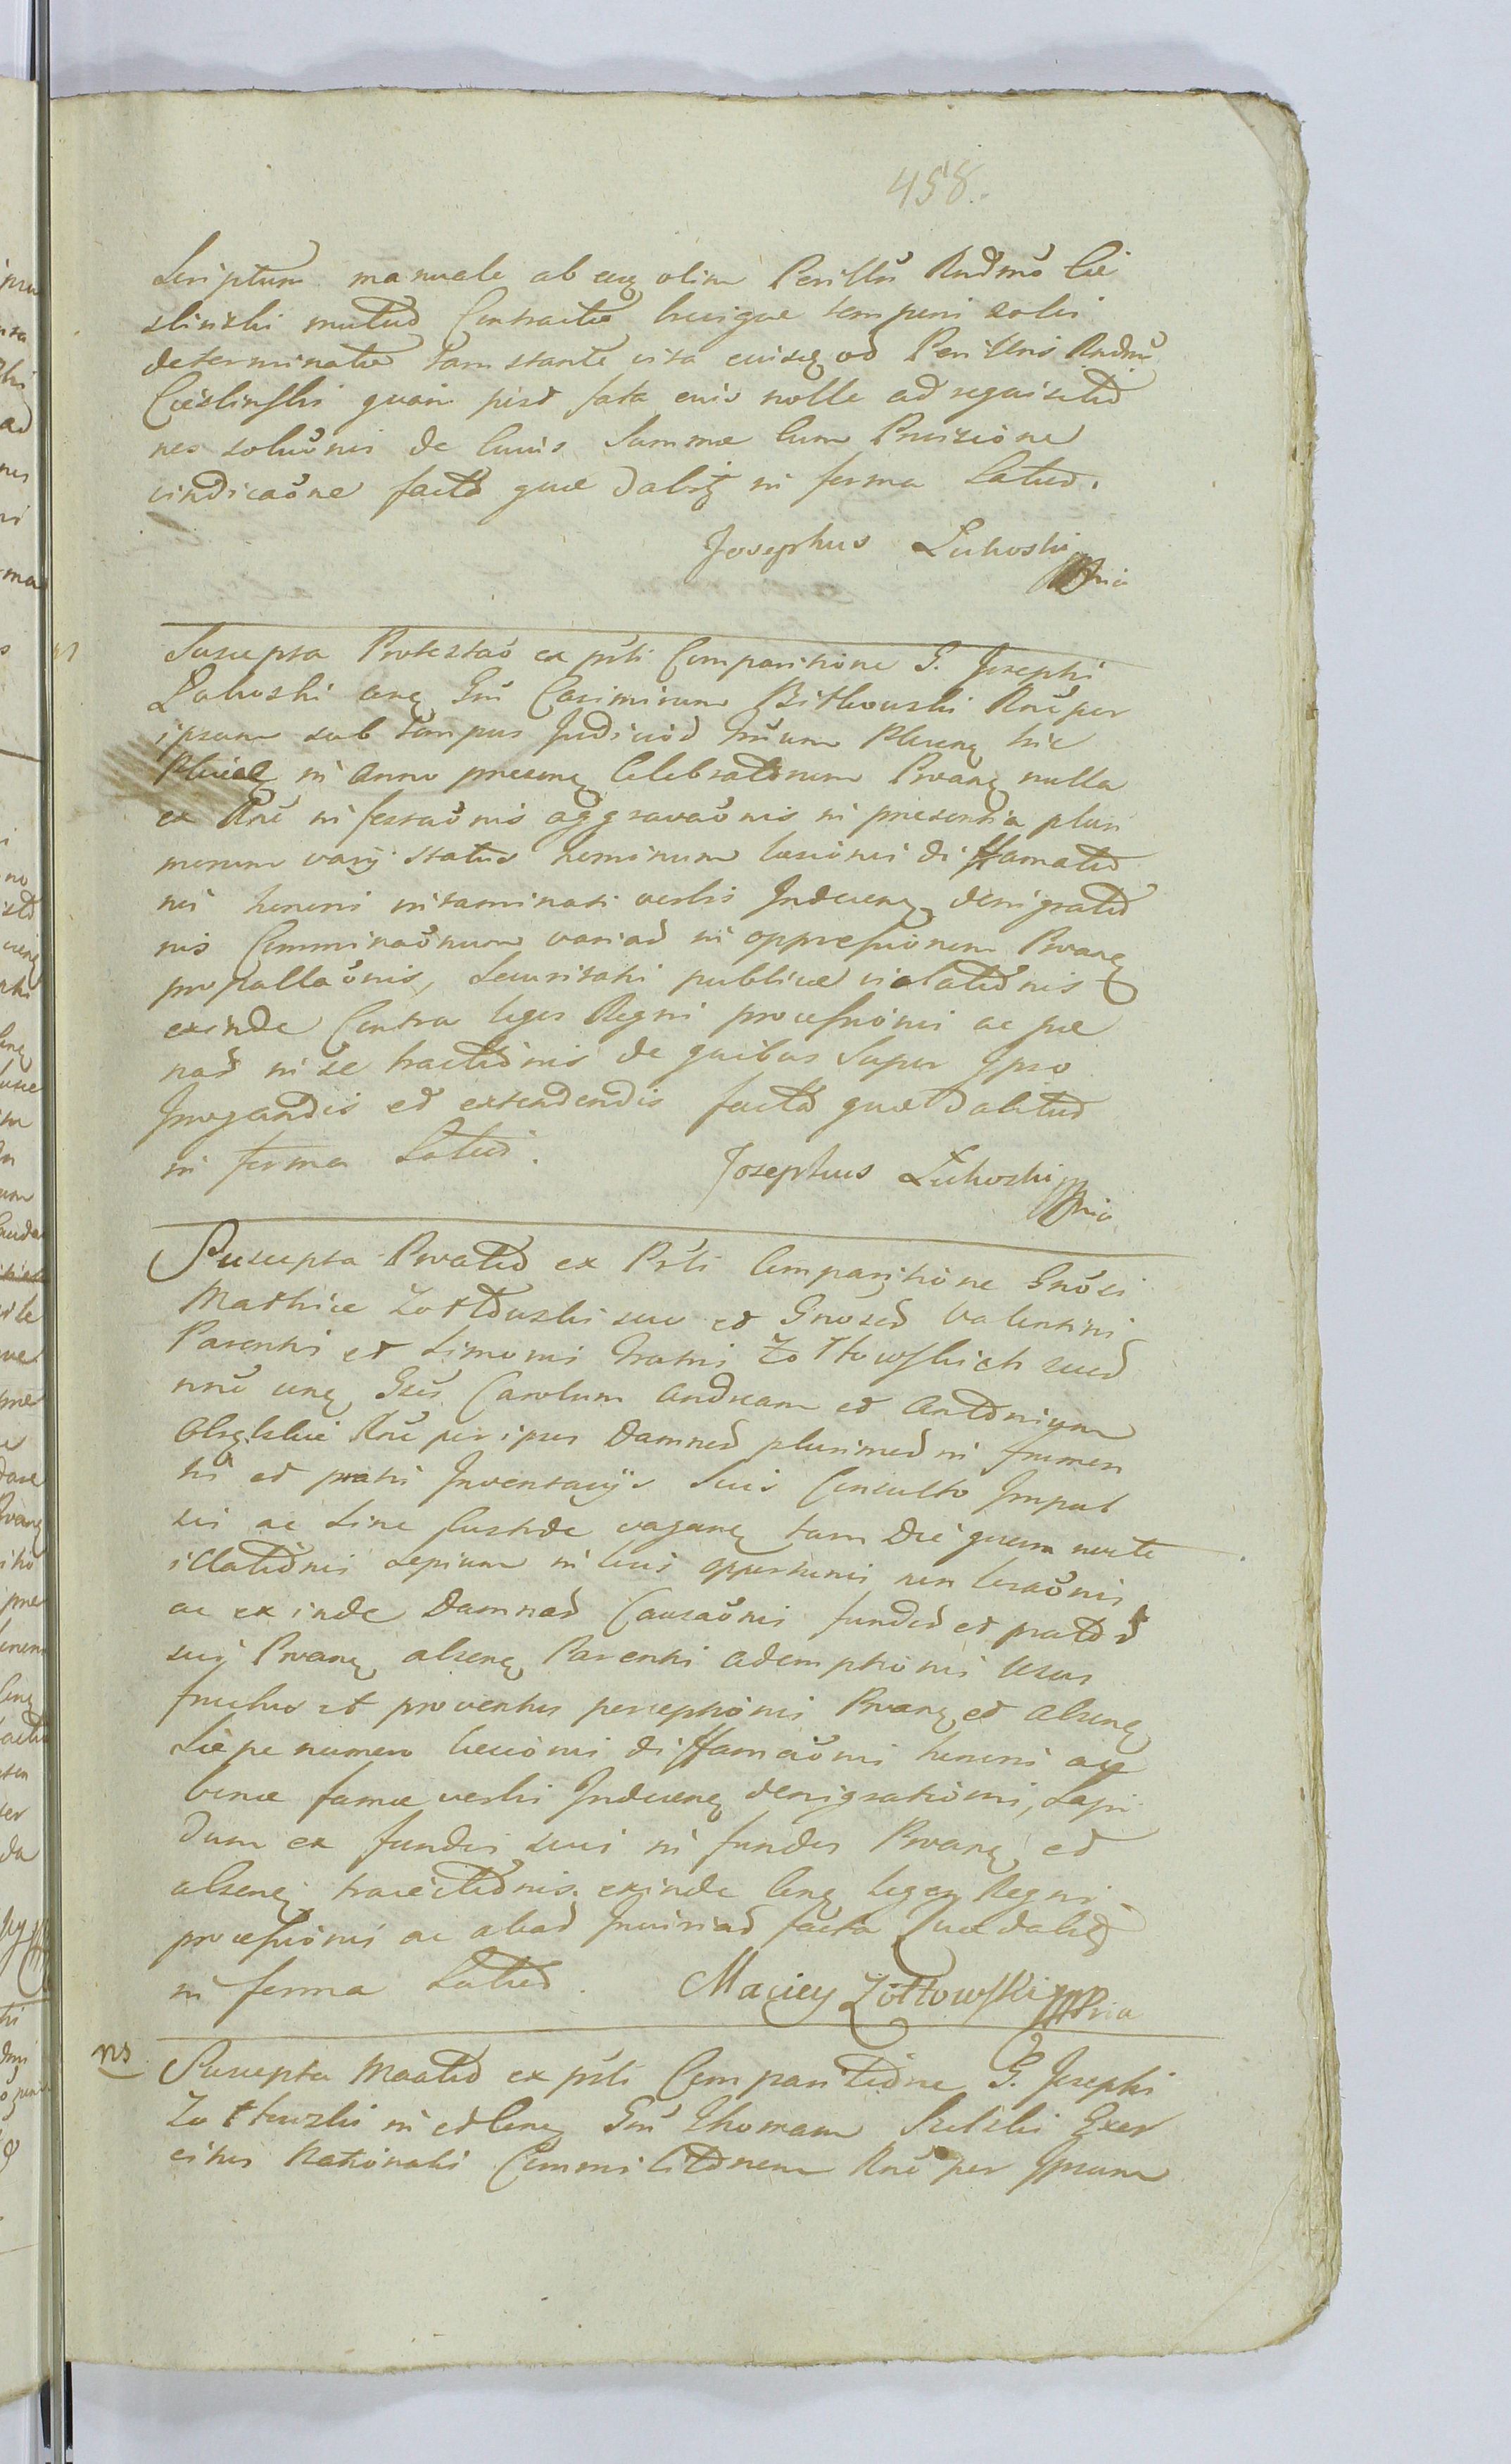 458.
Scriptum manuale ab eoq olim Perillŭ Rndmŏ Cie
slinski mutuo Contractæ brevique tempori solvi
determinatæ tam stante vita eiusq ad Perillris Rndmi
Cieslinski quam post fata eius nolle ad requisitio
nes solvŏnis de Cuius Summæ Cum Provizione
vindicaŏne facta quæ dabitr in forma Latius.
Josephus Lukoski mpria
Suscepta Protestaŏ ex psti Comparitione G. Josephi
Lukoski erg Gŭ Casimirum Bitkowski Rnĕ per
ipsum sub tempus Judicior Trŭum Plocens hic
Plociæ in Anno præsenq Celebrator̄um Protang nulla
ex Rnĕ infestaŏnis aggravaŏnis in præsentia pluri
morum varij status hominum læsionis diffamatio
nis honoris intaminati verbis Indecenq denigratio
nis Comminaŏnum variar in oppressionem Protang
propallaŏnis, Securitatis publicæ violationis
exinde Contra leges Regni processionis ac pœ
nar in se tractionis de quibus Super Ipso
Irrogandis et extendendis facta quæ dabitur
in forma Latius.
Josephus Lukoski mpria
Suscepta Protatio ex Psti Comparitione Gnŏsi
Mathiæ Zołtowski suo et Gnosor Valentini
Parentis et Simonis Fratris Zołtowskich suor
nnĕ cong Gŭs Carolum Andream et Antonium
Rnĕ per ipsos Damnor plurimor in frumen
tis et pratis Inventarijs Suis Consulto Impul
sis ac Sine Custode vaganq tam die quam nocte
illationis sepium in locis opportunis non locaŏnis
ac exinde Damnor Causaŏnis fundor et prator
suij Protang absenq Parentis ademptionis Usus
fructus et proventus perceptionis Protang et Absenq
Sæpe numero læsionis diffamaŏnis honoris ac
bonæ famæ verbis Indecenq denigrationis, Lapi
dum ex fundis suis in fundos Protang et
absenq traiectionis exinde Cong leges Regni
processionis ac aliar Iniuriar facta Quæ dabitr
in forma Latius. Maciey Zołtowski mpria
ns Suscepta Maatio ex psti Comparitione G. Josephi
Zołtowski in et Cong Gŭ Thomam Exer
citus Nationalis Commilitonem Rnĕ per Ipsum